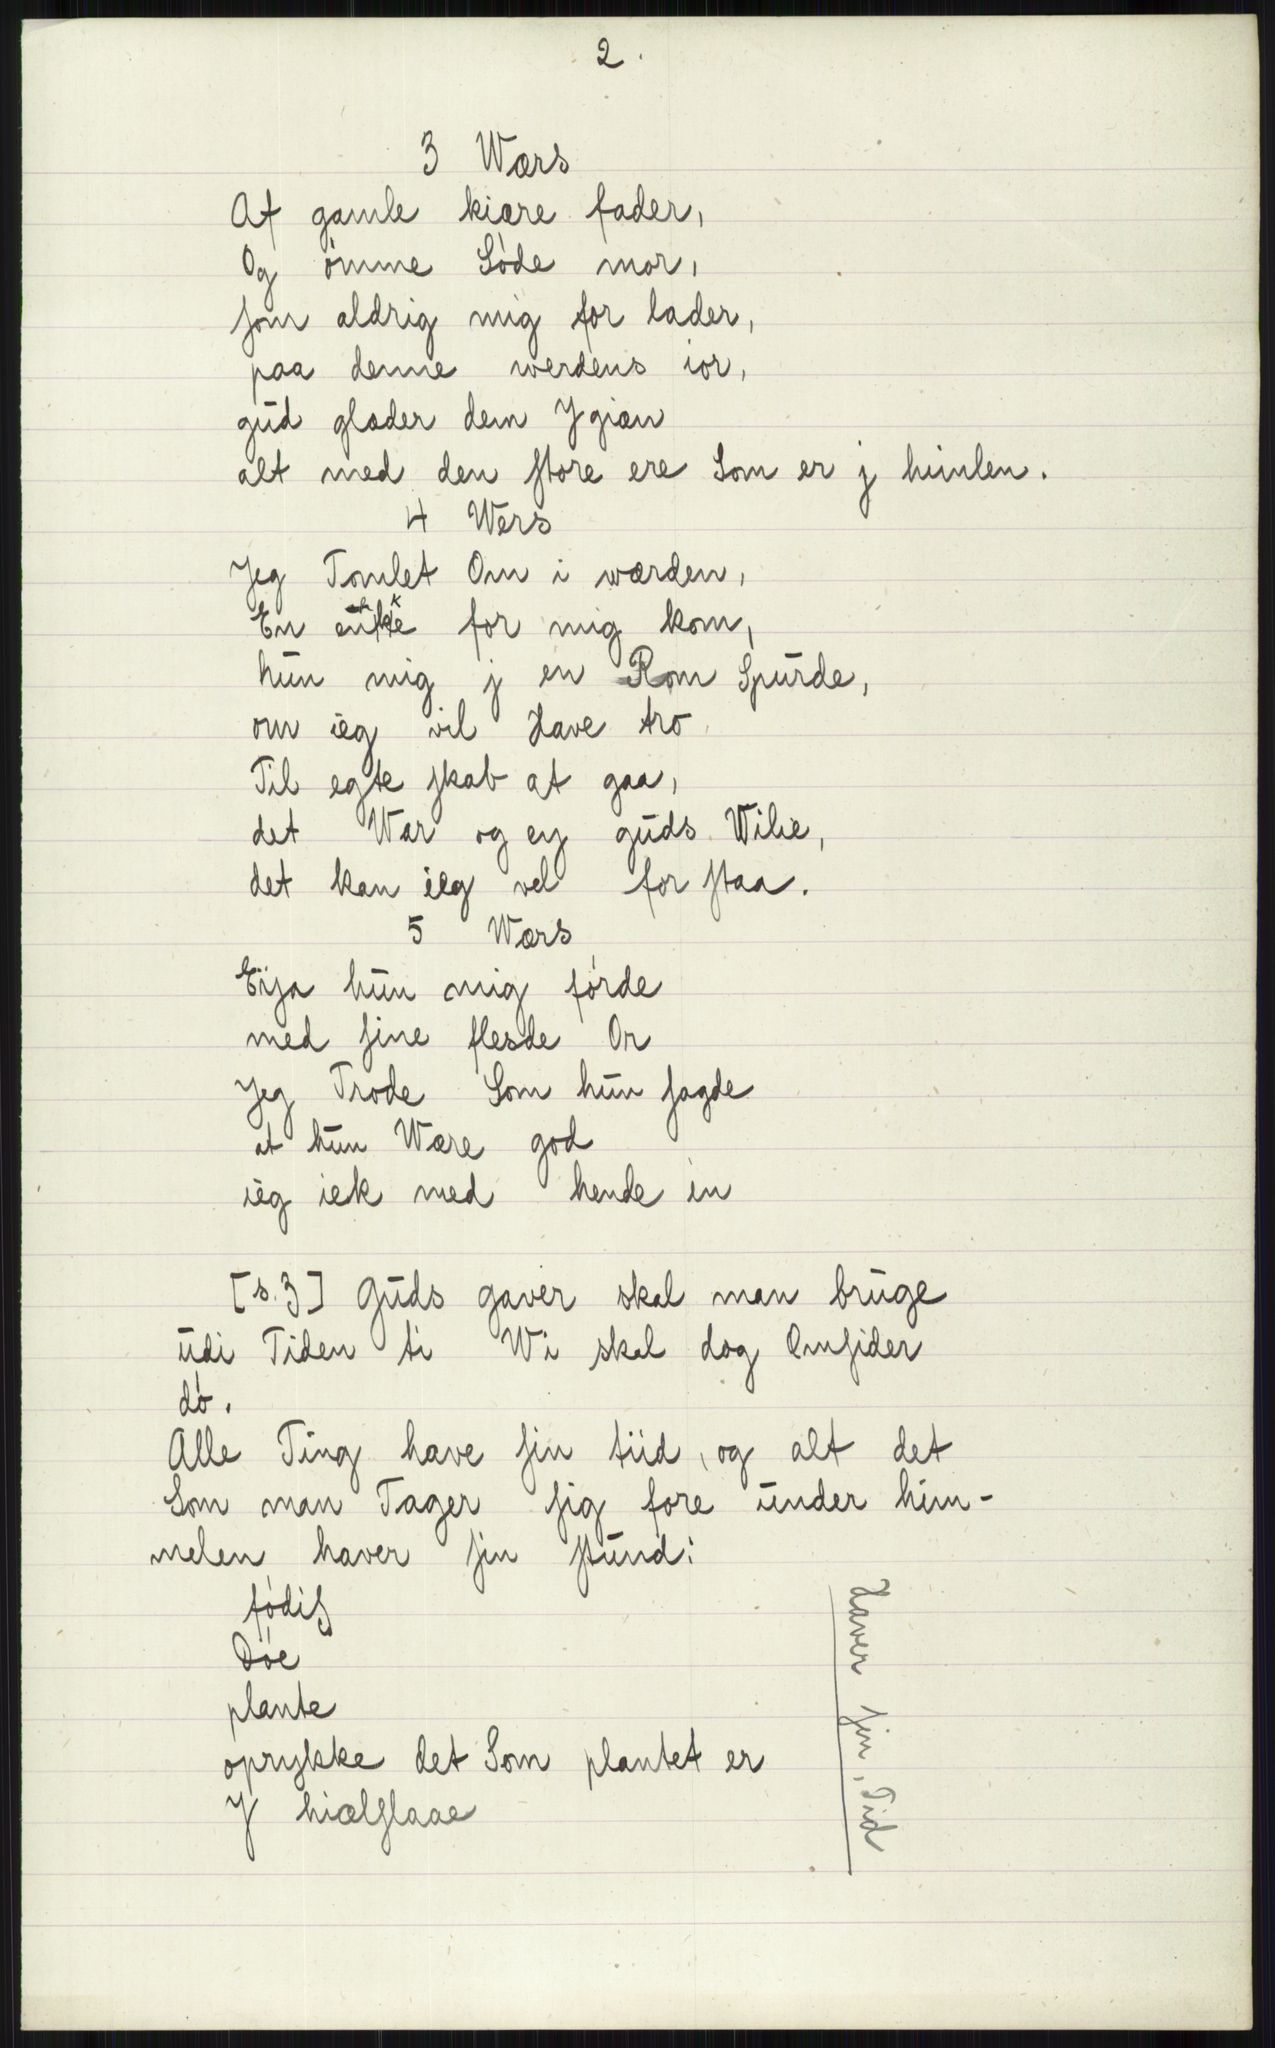 2.
3 Wærs
Af gamle kiære fader,
Og ømme Søde mor,
som aldrig mig for lader,
paa denne werdens ior,
gud glæder dem Ygiæn
alt med den store ere Som er j himlen.
4 Wers
Jeg Tomlet Om i wærden,
En enke for mig kom,
hun mig j en Rom Spurde,
om ieg vil Have tro
Til egte skab at gaa,
det War og ey guds Wilie,
det kan ieg vel for staa.
5 Wærs
Eija hun mig førde
med sine flesde Or
Jeg Trode Som hun sagde
at hun Wære god
ieg iek med hende in
[s.3] Guds gaver skal man bruge
udi Tiden ti Wi skal dog Omsider
dø.
Alle Ting have sin tiid, og alt det
Som man Tager sig fore under him-
melen haver sin stund:
fødis
Døe
plante
oprykke det Som plantet er
Y hiælslaae
Haver sin, Tid